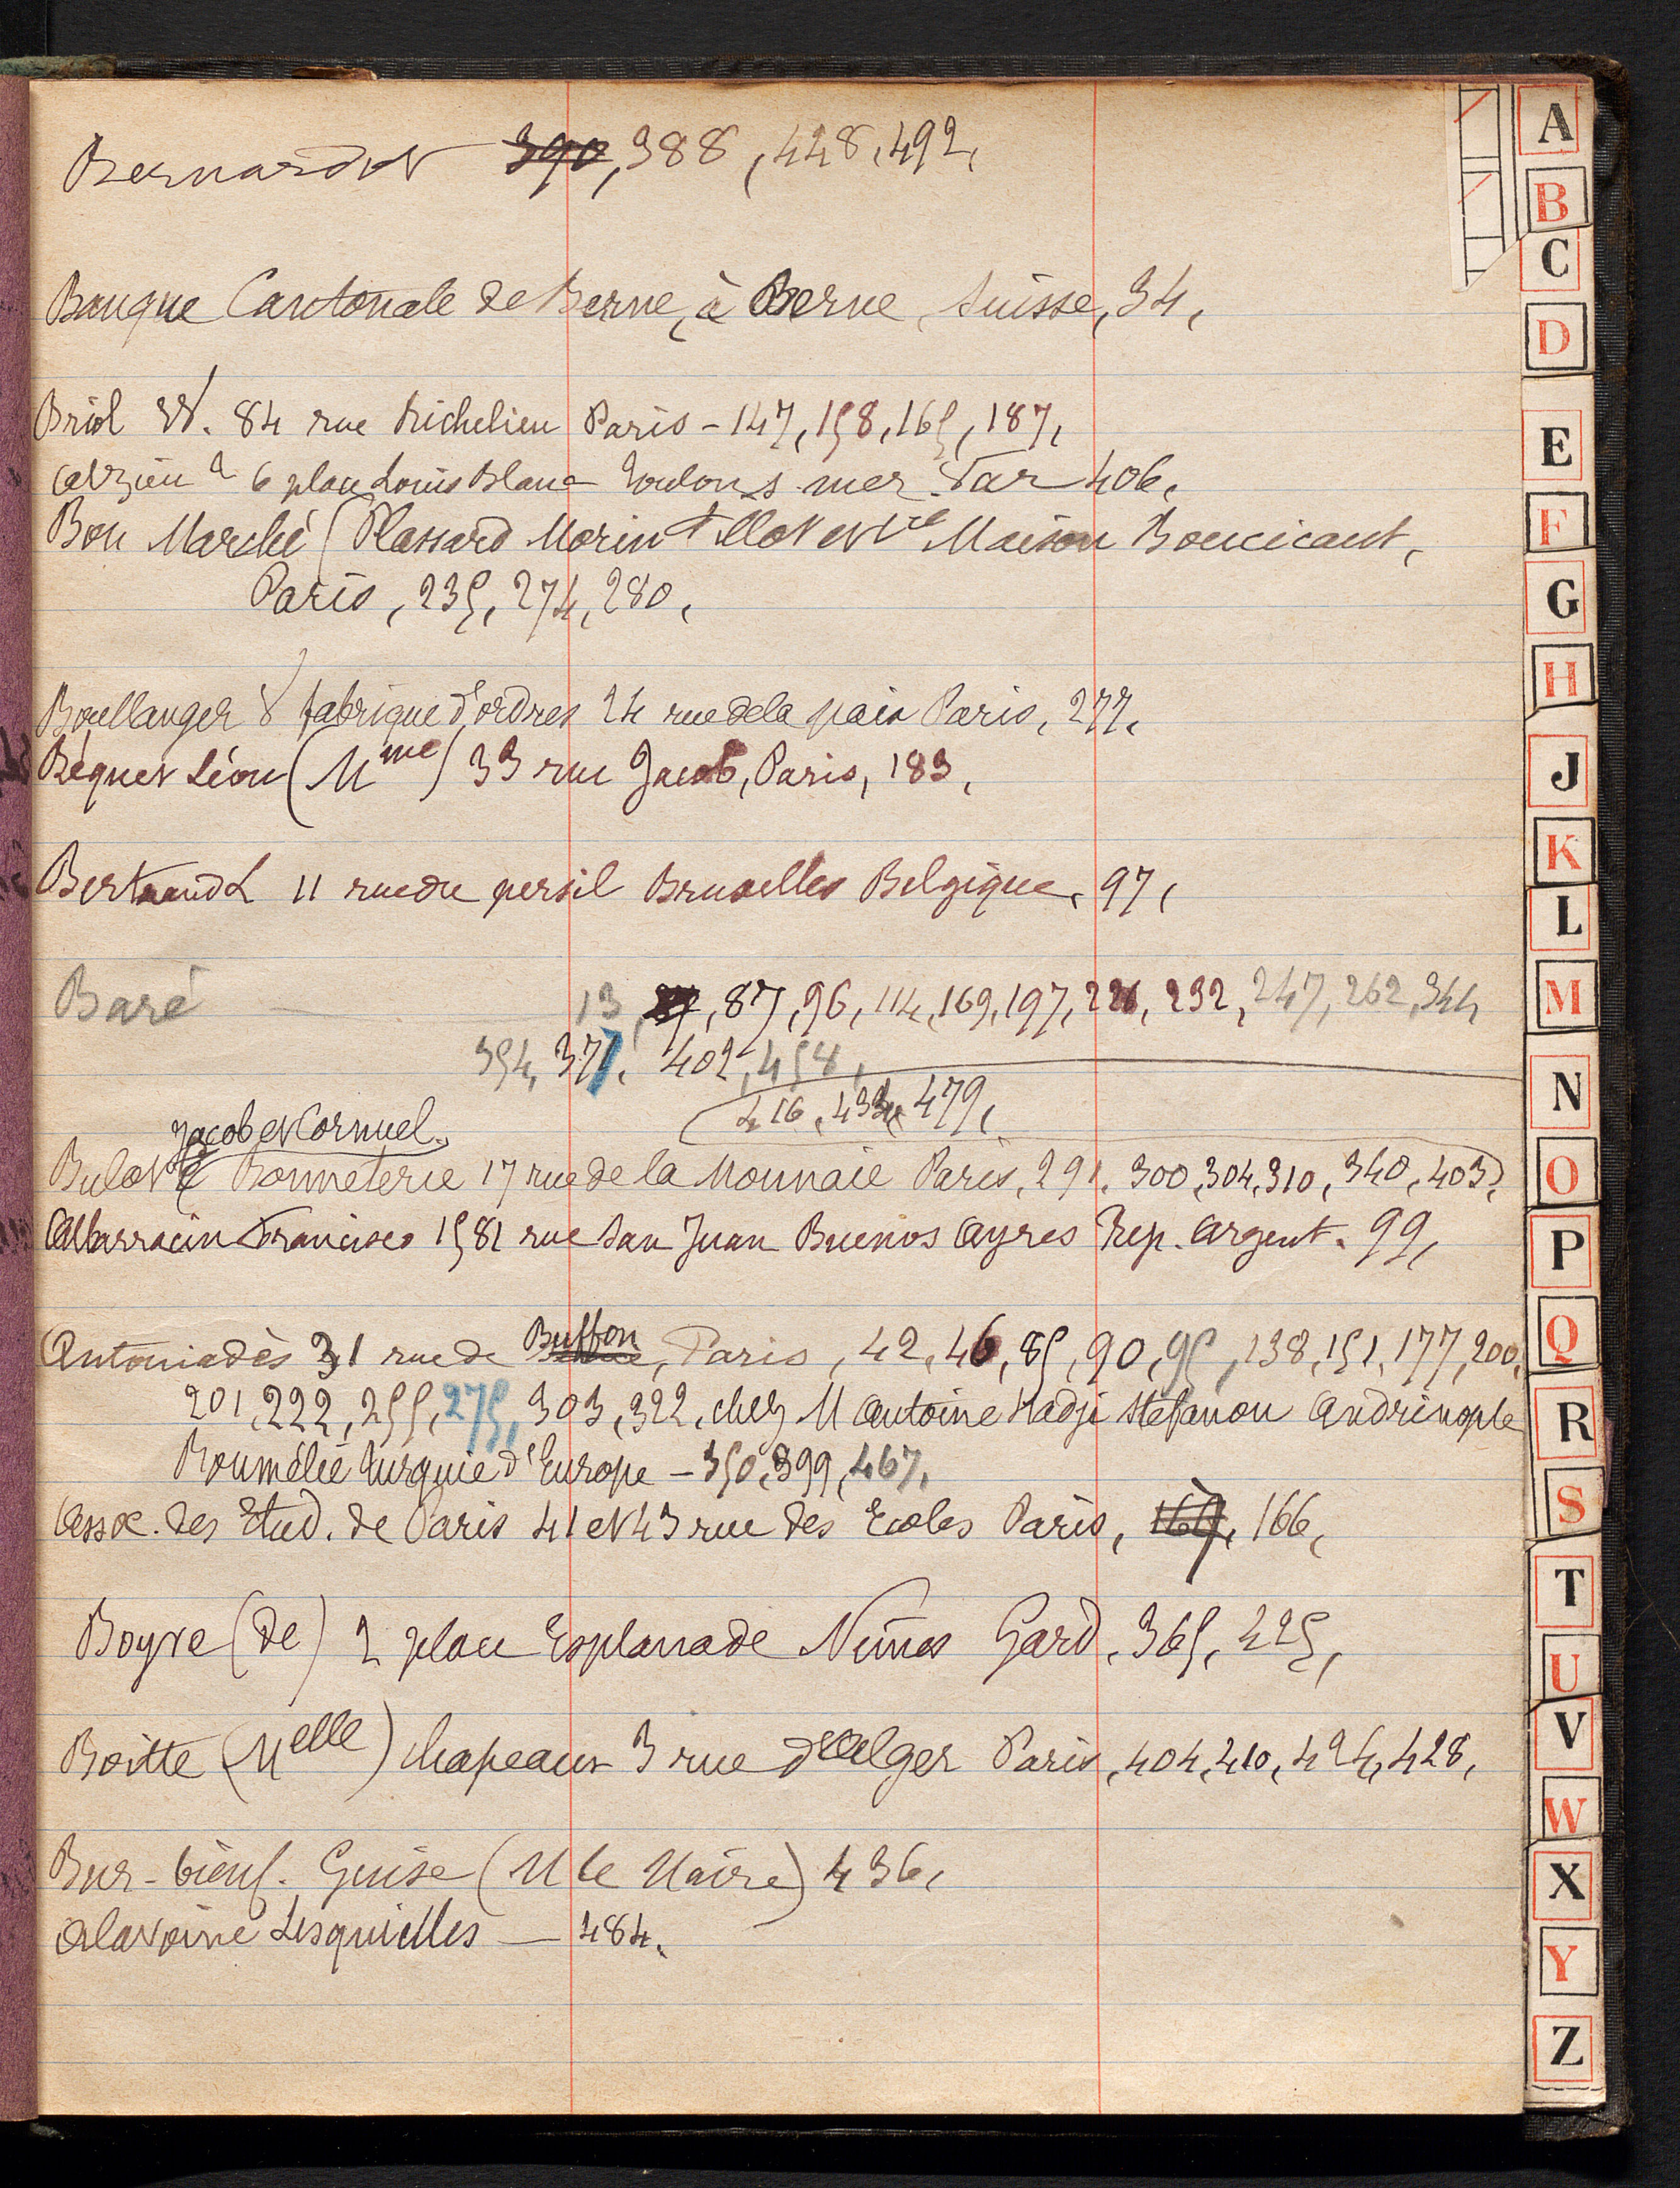 Bernardot 390, 388, 428, 492,
Banque Cantonale de Berne, à Berne, Suisse, 34,
Briol W. 84 rue Richelieu Paris - 147, 158, 165, 187,
6 place Louis Blanc Toulon s mer Var 406,
Bon Marché (Plassard Morin Fillot et Cie Maison Boucicaut,
Paris, 235, 274, 280,
Boullanger fabrique d'ordres 24 rue de la paix Paris, 277,
Béquet Léon (Mme) 33 rue Jacob, Paris, 183,
Bertrand L 11 rue du persil Bruxelles Belgique, 97,
Baré 13, 87, 96, 114, 169, 197, 226, 232, 247, 262, 344,
354, 377, 402, 458,
416, 433, 479,
Jacob et Cornuel.
Bulot Bonneterie 17 rue de la Monnaie Paris, 291, 300, 304, 310, 340, 403,
Albarracin Francisco 1581 rue San Juan Buenos Ayres Rep. Argent. 99,
Buffon
Antoniadès 31 rue de Paris, 42, 46, 85, 90, 95, 138, 151, 177, 200,
201, 222, 255, 275, 303, 322, chez M Antoine Hadji Stefanou Andrinople
Roumélie Turquie d'Europe - 350, 399, 467,
Assoc. des Etud. de Paris 41 et 43 rue des Ecoles Paris, 166,
Boyve (de) 2 place Esplanade Nîmes Gard, 365, 425,
Boitte (Melle) chapeaux 3 rue d'Alger Paris, 404, 410, 424, 428,
Bur-bienf. Guise (M le Maire) 436,
Alavoine Lesquielles - 484.
A
B
C
D
E
F
G
H
J
K
L
M
N
O
P
Q
R
S
T
U
V
W
X
Y
Z